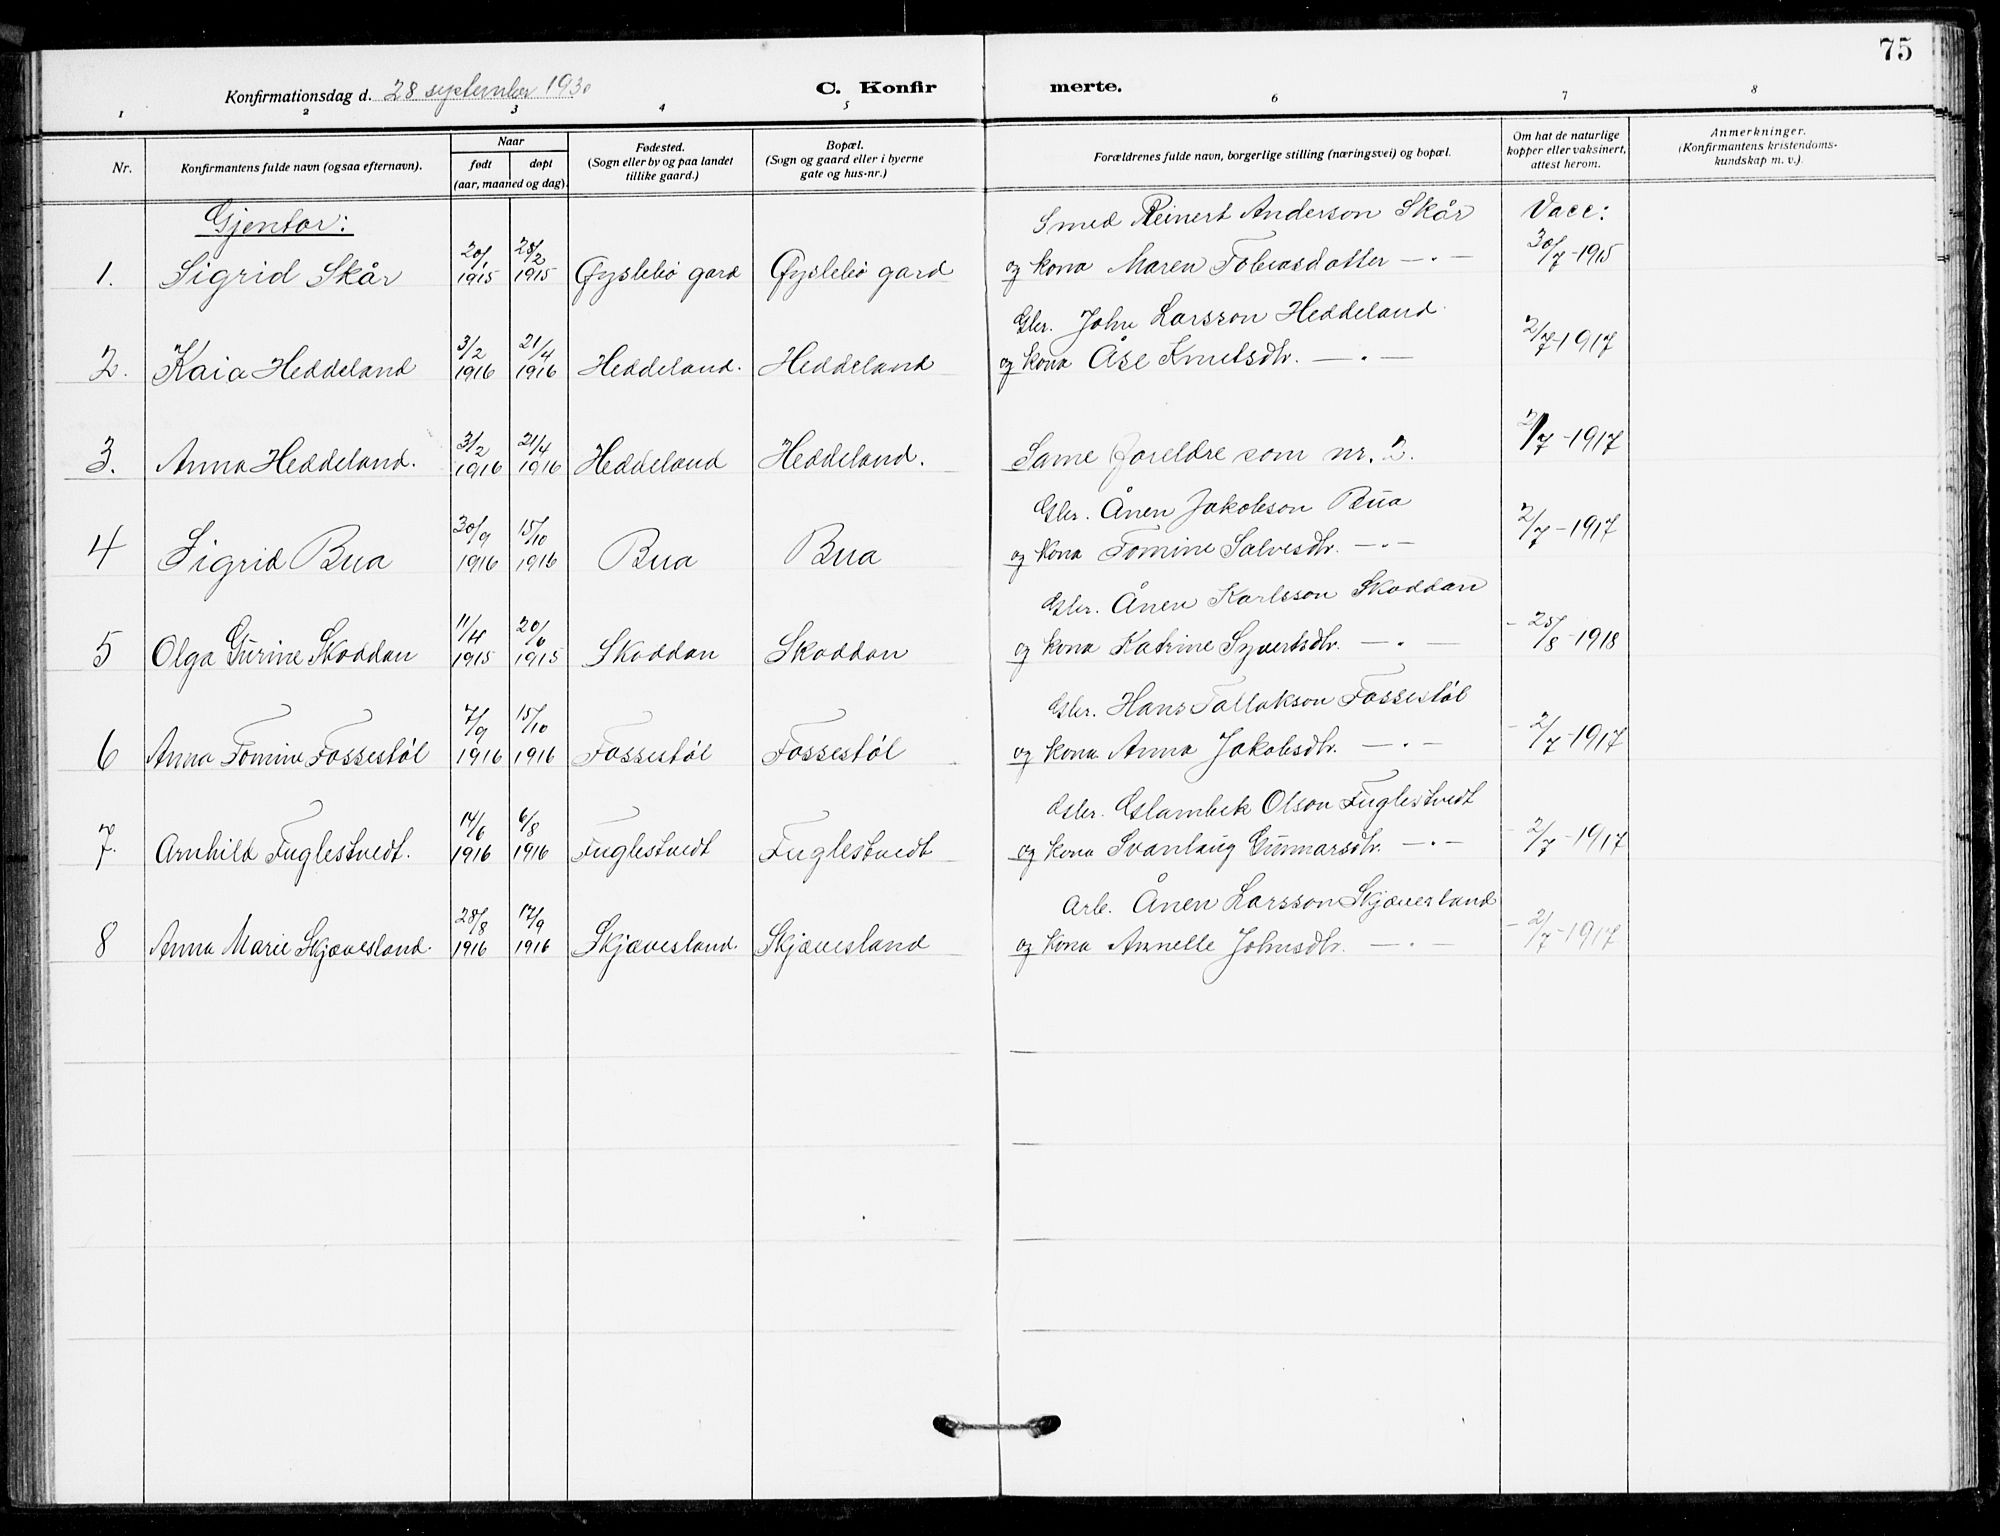 75
Konfirmationsdag d. 28 september 1930 C. Konfirmerte.
1 2 3 4 5 6 7 8
Nr. Konfirmantens fulde navn (ogsaa efternavn). Naar født døpt (aar, maaned og dag). Fødested. (Sogn eller by og paa landet tillike gaard.) Bopæl. (Sogn og gaard eller i byerne gate og hus-nr.) Forældrenes fulde navn, borgerlige stilling (næringsvei) og bopæl. Om hat de naturlige kopper eller vaksinert, attest herom. Anmerkninger. (Konfirmantens kristendomskundskap m. v.).
Gjentor: Smed Reinert Anderson Skår Vacc:
1. Sigrid Skår 20/1 1915 28/2 1915 Øyslebø gard Øyslebø gard og kona Maren Tobiasdotter — . — 30/7 - 1915
Gbr. John Larsson Heddeland
2. Kaia Heddeland 3/2 1916 21/4 1916 Heddeland. Heddeland og kona Åse Knutsdtr. — . — 2/7 - 1917
3. Anna Heddeland. 3/2 1916 21/4 1916 Heddeland Heddeland. Same foreldre som nr. 2. 2/7 - 1917
Gbr. Ånen Jakobson Bua
4 Sigrid Bua 30/9 1916 15/10 1916 Bua Bua og kona Tomine Salvesdtr. — . — 2/7 - 1917
Gbr. Ånen Karlsson Skoddan
5 Olga Gurine Skoddan 11/4 1915 20/6 1915 Skoddan Skoddan og kona Katrine Syvertsdtr. — . — - 25/8 - 1918
Gbr. Hans Tallakson Fossestøl
6 Anna Tomine Fossestøl 7/9 1916 15/10 1916 Fossestøl Fossestøl og kona Anna Jakobsdtr. — . — - 2/7 - 1917
Gbr. Eslambek Olson Fuglestvedt
7. Arnhild Fuglestvedt. 14/6 1916 6/8 1916 Fuglestvedt Fuglestvedt og kona Svanlaug Gunnarsdtr. — . — - 2/7 - 1917
Arb. Ånen Larsson Skjævesland
8 Anna Marie Skjævesland. 28/8 1916 17/9 1916 Skjævesland. Skjævesland og kona Annelle Johnsdtr. — . — - 2/7 - 1917